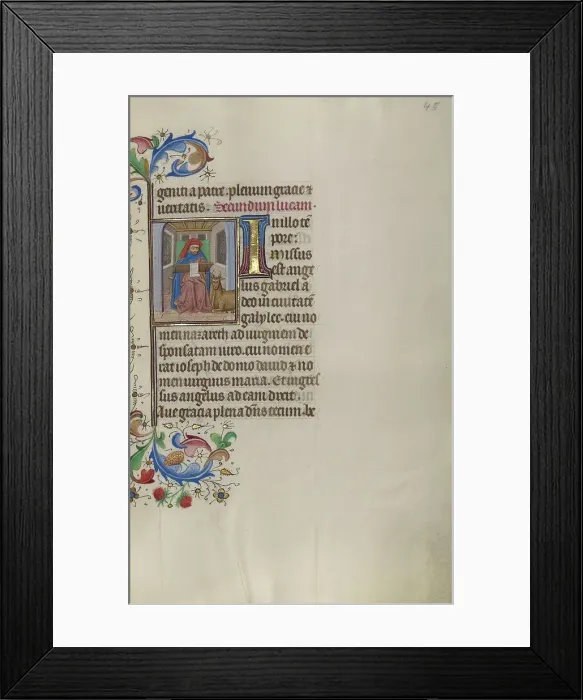 48
geniti a patre. plenum gracie ⁊
ueritatis. Secundum lucam.
In illo tē
pore:
missus
est ange
lus gabriel a
deo in ciuitatē
galylee. cui no
men nazareth ad uirginem de
sponsatam uiro. cui nomen e
rat ioseph de domo dauid ⁊ no
men uirginis maria. Et ingres
sus angelus ad eam dixit
Aue gracia plena dn̄s tecum. be